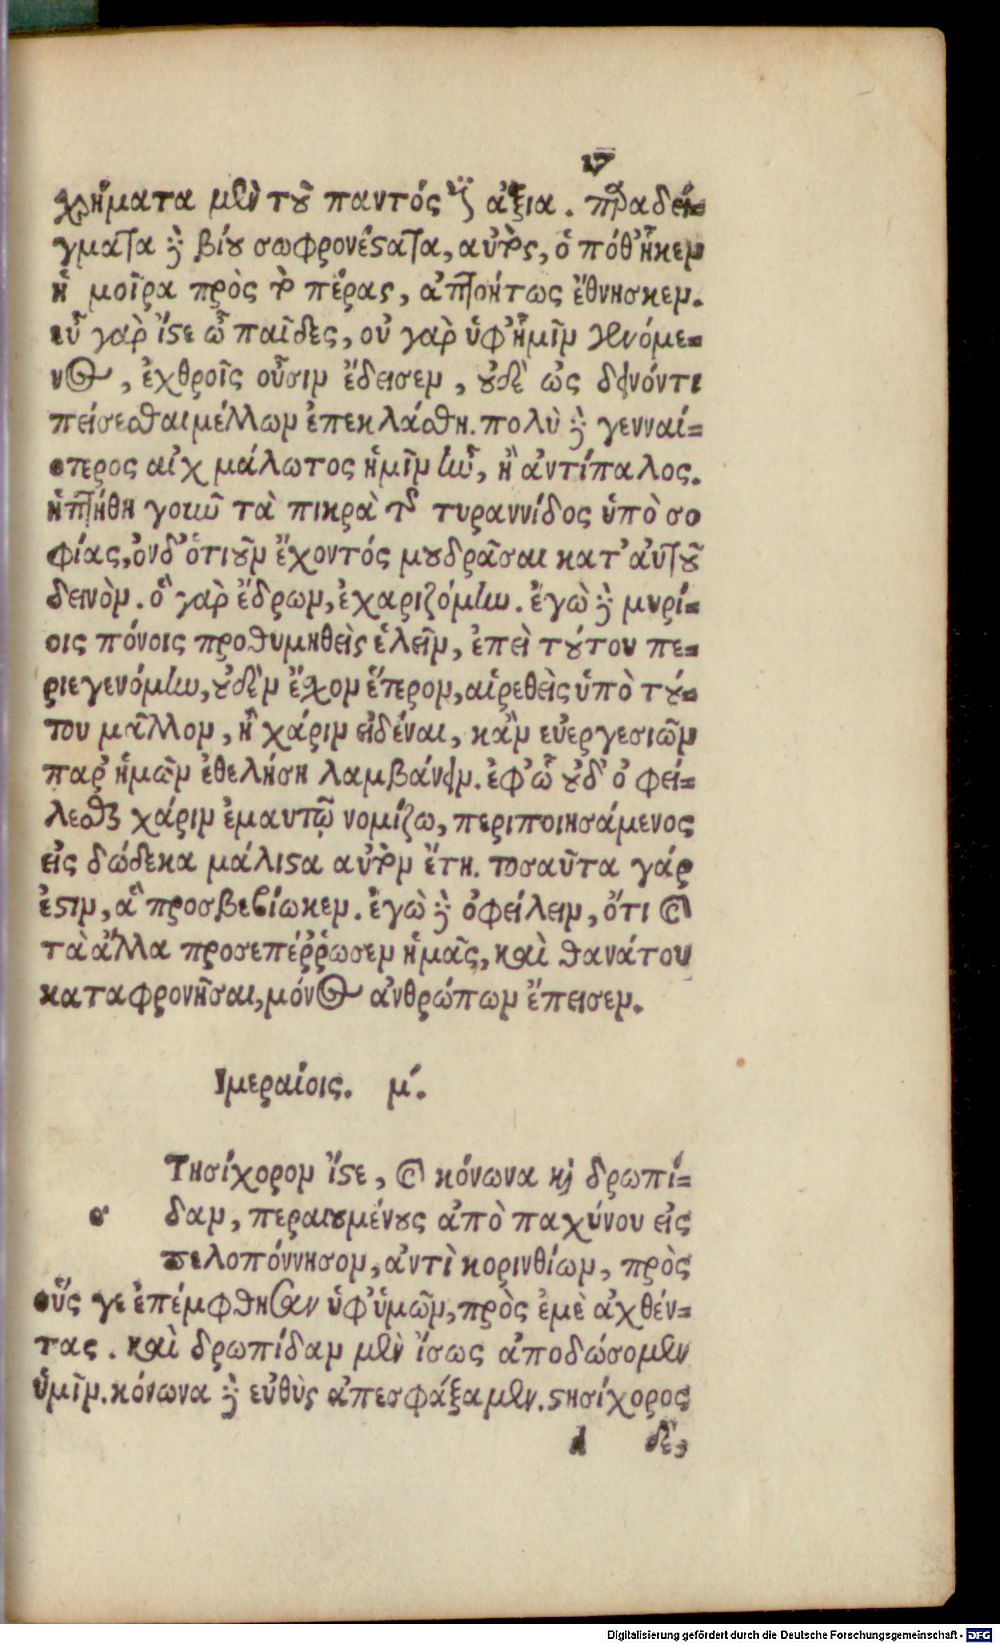 17
χρήματα μὲν τοῦ παντός ἄξια. παραδεί-
γματα δὲ βίου σωφρονέστατα, αὐτὸς, ὁ πόθ' ἧκεν
ἡ μοῖρα πρὸς τὸ πέρας, ἀπτοήτως ἔθνησκεν.
εὖ γὰρ ἴστε ὦ παῖδες, οὐ γὰρ ὑφ' ἡμῖν γενόμε-
νος, ἐχθροῖς οὖσιν ἔδεισεν, οὐδὲ ὡς δεινόν τι
πείσεσθαι μέλλων ἐπεκλάσθη. πολὺ δὲ γενναί-
οτερος αἰχμάλωτος ἡμῖν ἦν, ἢ ἀντίπαλος.
ἡττήθη γοῦν τὰ πικρὰ τῆς τυραννίδος ὑπὸ σο
φίας, οὐδ' ὁτιοῦν ἔχοντός μου δρᾶσαι κατ' αὐτοῦ
δεινὸν. ὃ γὰρ ἔδρων, ἐχαριζόμην. ἔγὼ δὲ μυρί-
οις πόνοις προθυμηθεὶς ἑλεῖν, ἐπεὶ τούτου πε-
ριεγενόμην, οὐδὲν ἔχον ἕτερον, αἱρεθεὶς ὑπὸ τού-
του μᾶλλον, ἢ χάριν εἰδέναι, κἂν εὐεργεσιῶν
παρ' ἡμῶν ἐθελήση λαμβάνειν. ἐφ' ὧ οὐδ' ὀφεί-
λεσθαι χάριν ἐμαυτῷ νομίζω, περιποιησάμενος
εἰς δώδεκα μάλιστα αὐτὸν ἔτη. τοσαῦτα γάρ
ἐστιν, ἃ προσβεβίωκεν. ἐγὼ δὲ ὀφείλειν, ὅτι καὶ
τὰ ἄλλα προσεπέῤῥωσεν ἡμᾶς, καὶ θανάτου
καταφρονῆσαι, μόνος ἀνθρώπων ἔπεισεν.
Ιμεραίοις. μ'.
Τησίχορον ἴστε, καὶ κόνωνα καὶ δρωπί-
σ δαν, περαιουμένους ἀπὸ παχύνου εἰς
πελοπόννησον, ἀντὶ κορινθίων, πρὸς
οὕς γε ἐπέμφθησαν ὑφ' ὑμῶν, πρὸς ἐμὲ ἀχθέν-
τας. καὶ δρωπίδαν μὲν ἴσως ἀποδώσομεν
ὑμῖν. κόνωνα δὲ εὐθὺς ἀπεσφάξαμεν. στησίχορος
d δὲ,
Digitalisierung gefördert durch die Deutsche Forschungsgemeinschaft - DFG